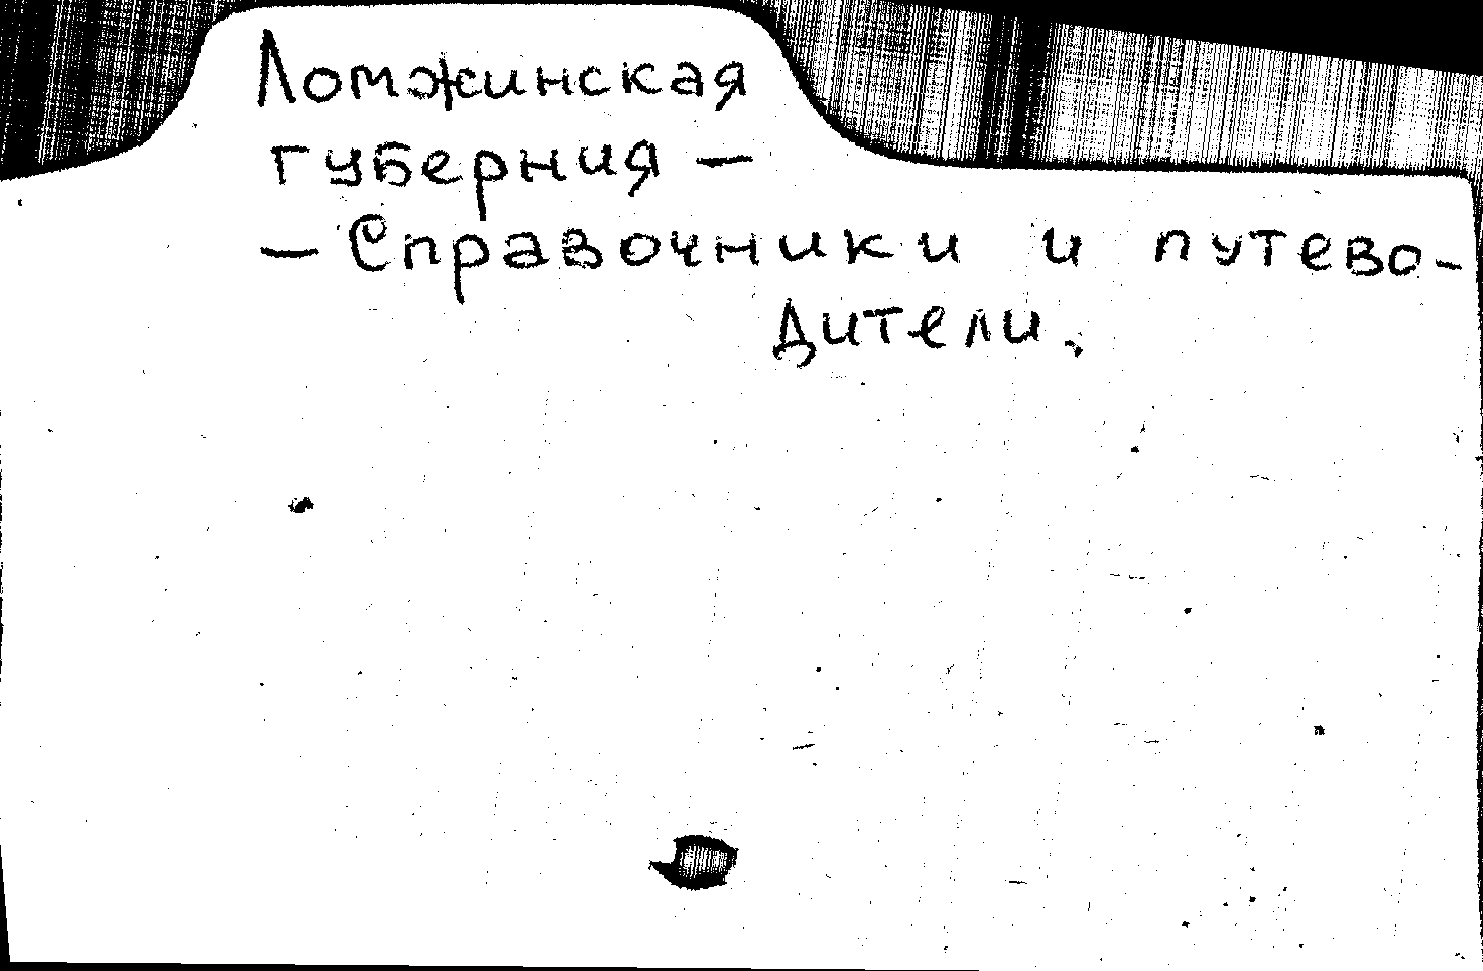 Ломжинская
губерния —
— Справочники и путево-
дители.